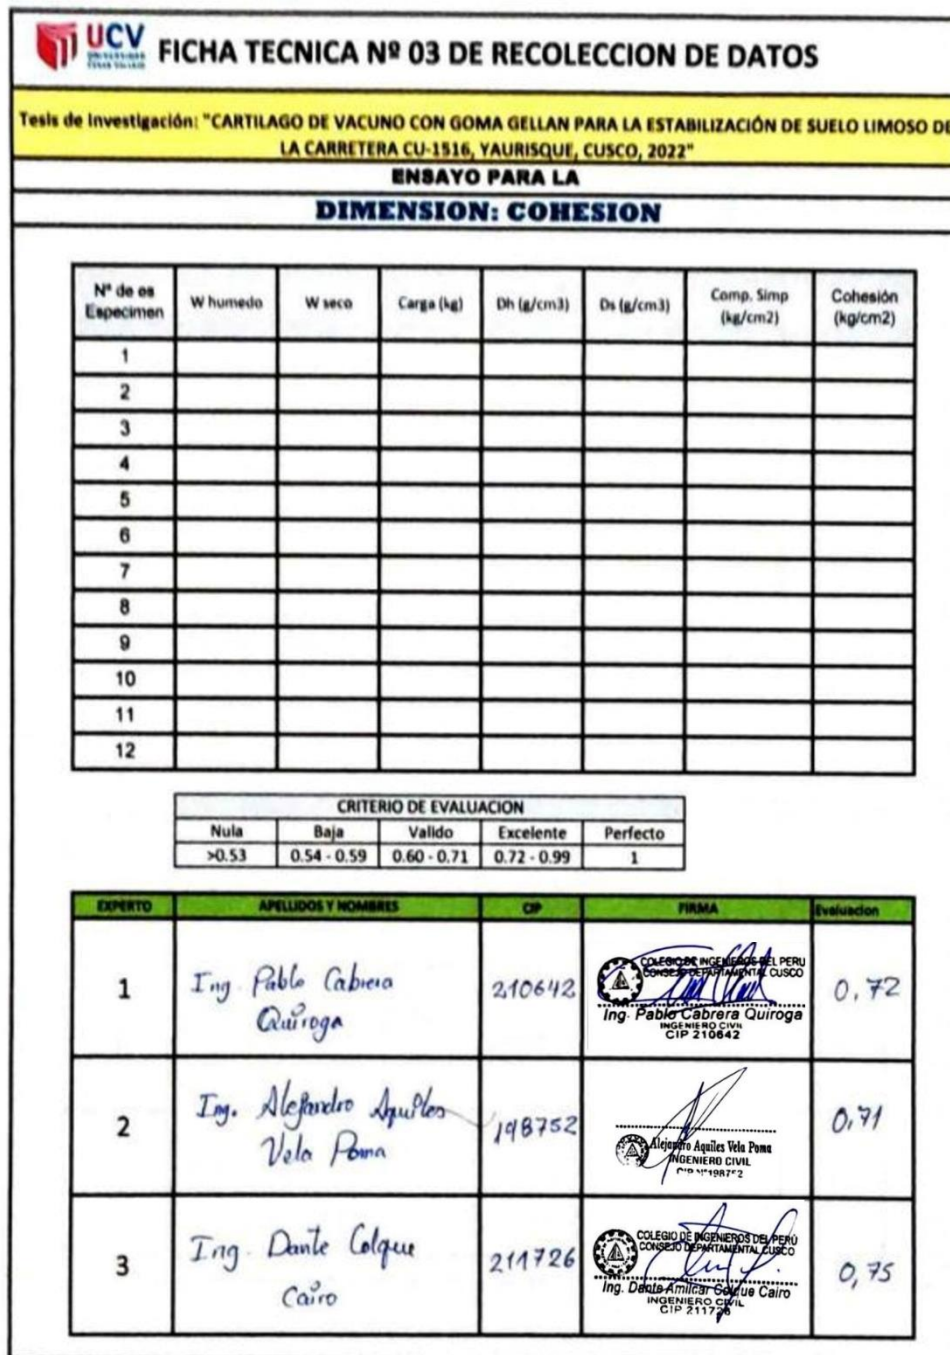 UCV
UNIVERSIDAD
CÉSAR VALLEJO
FICHA TECNICA Nº 03 DE RECOLECCION DE DATOS
Tesis de Investigación: "CARTILAGO DE VACUNO CON GOMA GELLAN PARA LA ESTABILIZACIÓN DE SUELO LIMOSO DE
LA CARRETERA CU-1516, YAURISQUE, CUSCO, 2022"
ENSAYO PARA LA
DIMENSION: COHESION
Nº de es Especimen W humedo W seco Carga (kg) Dh (g/cm3) Ds (g/cm3) Comp. Simp (kg/cm2) Cohesión (kg/cm2)
1
2
3
4
5
6
7
8
9
10
11
12
CRITERIO DE EVALUACION
Nula Baja Valido Excelente Perfecto
>0.53 0.54 - 0.59 0.60 - 0.71 0.72 - 0.99 1
EXPERTO APELLIDOS Y NOMBRES CIP FIRMA Evaluacion
1 Ing. Pablo Cabrera Quiroga 210642 0,72
COLEGIO DE INGENIEROS DEL PERU
CONSEJO DEPARTAMENTAL CUSCO
Ing. Pablo Cabrera Quiroga
INGENIERO CIVIL
CIP 210642
2 Ing. Alejandro Aquiles Vela Poma 198752 0,71
Alejandro Aquiles Vela Poma
INGENIERO CIVIL
CIP Nº198752
3 Ing. Dante Colque Cairo 211726 0,75
COLEGIO DE INGENIEROS DEL PERÚ
CONSEJO DEPARTAMENTAL CUSCO
Ing. Dante Amilcar Colque Cairo
INGENIERO CIVIL
CIP 211726